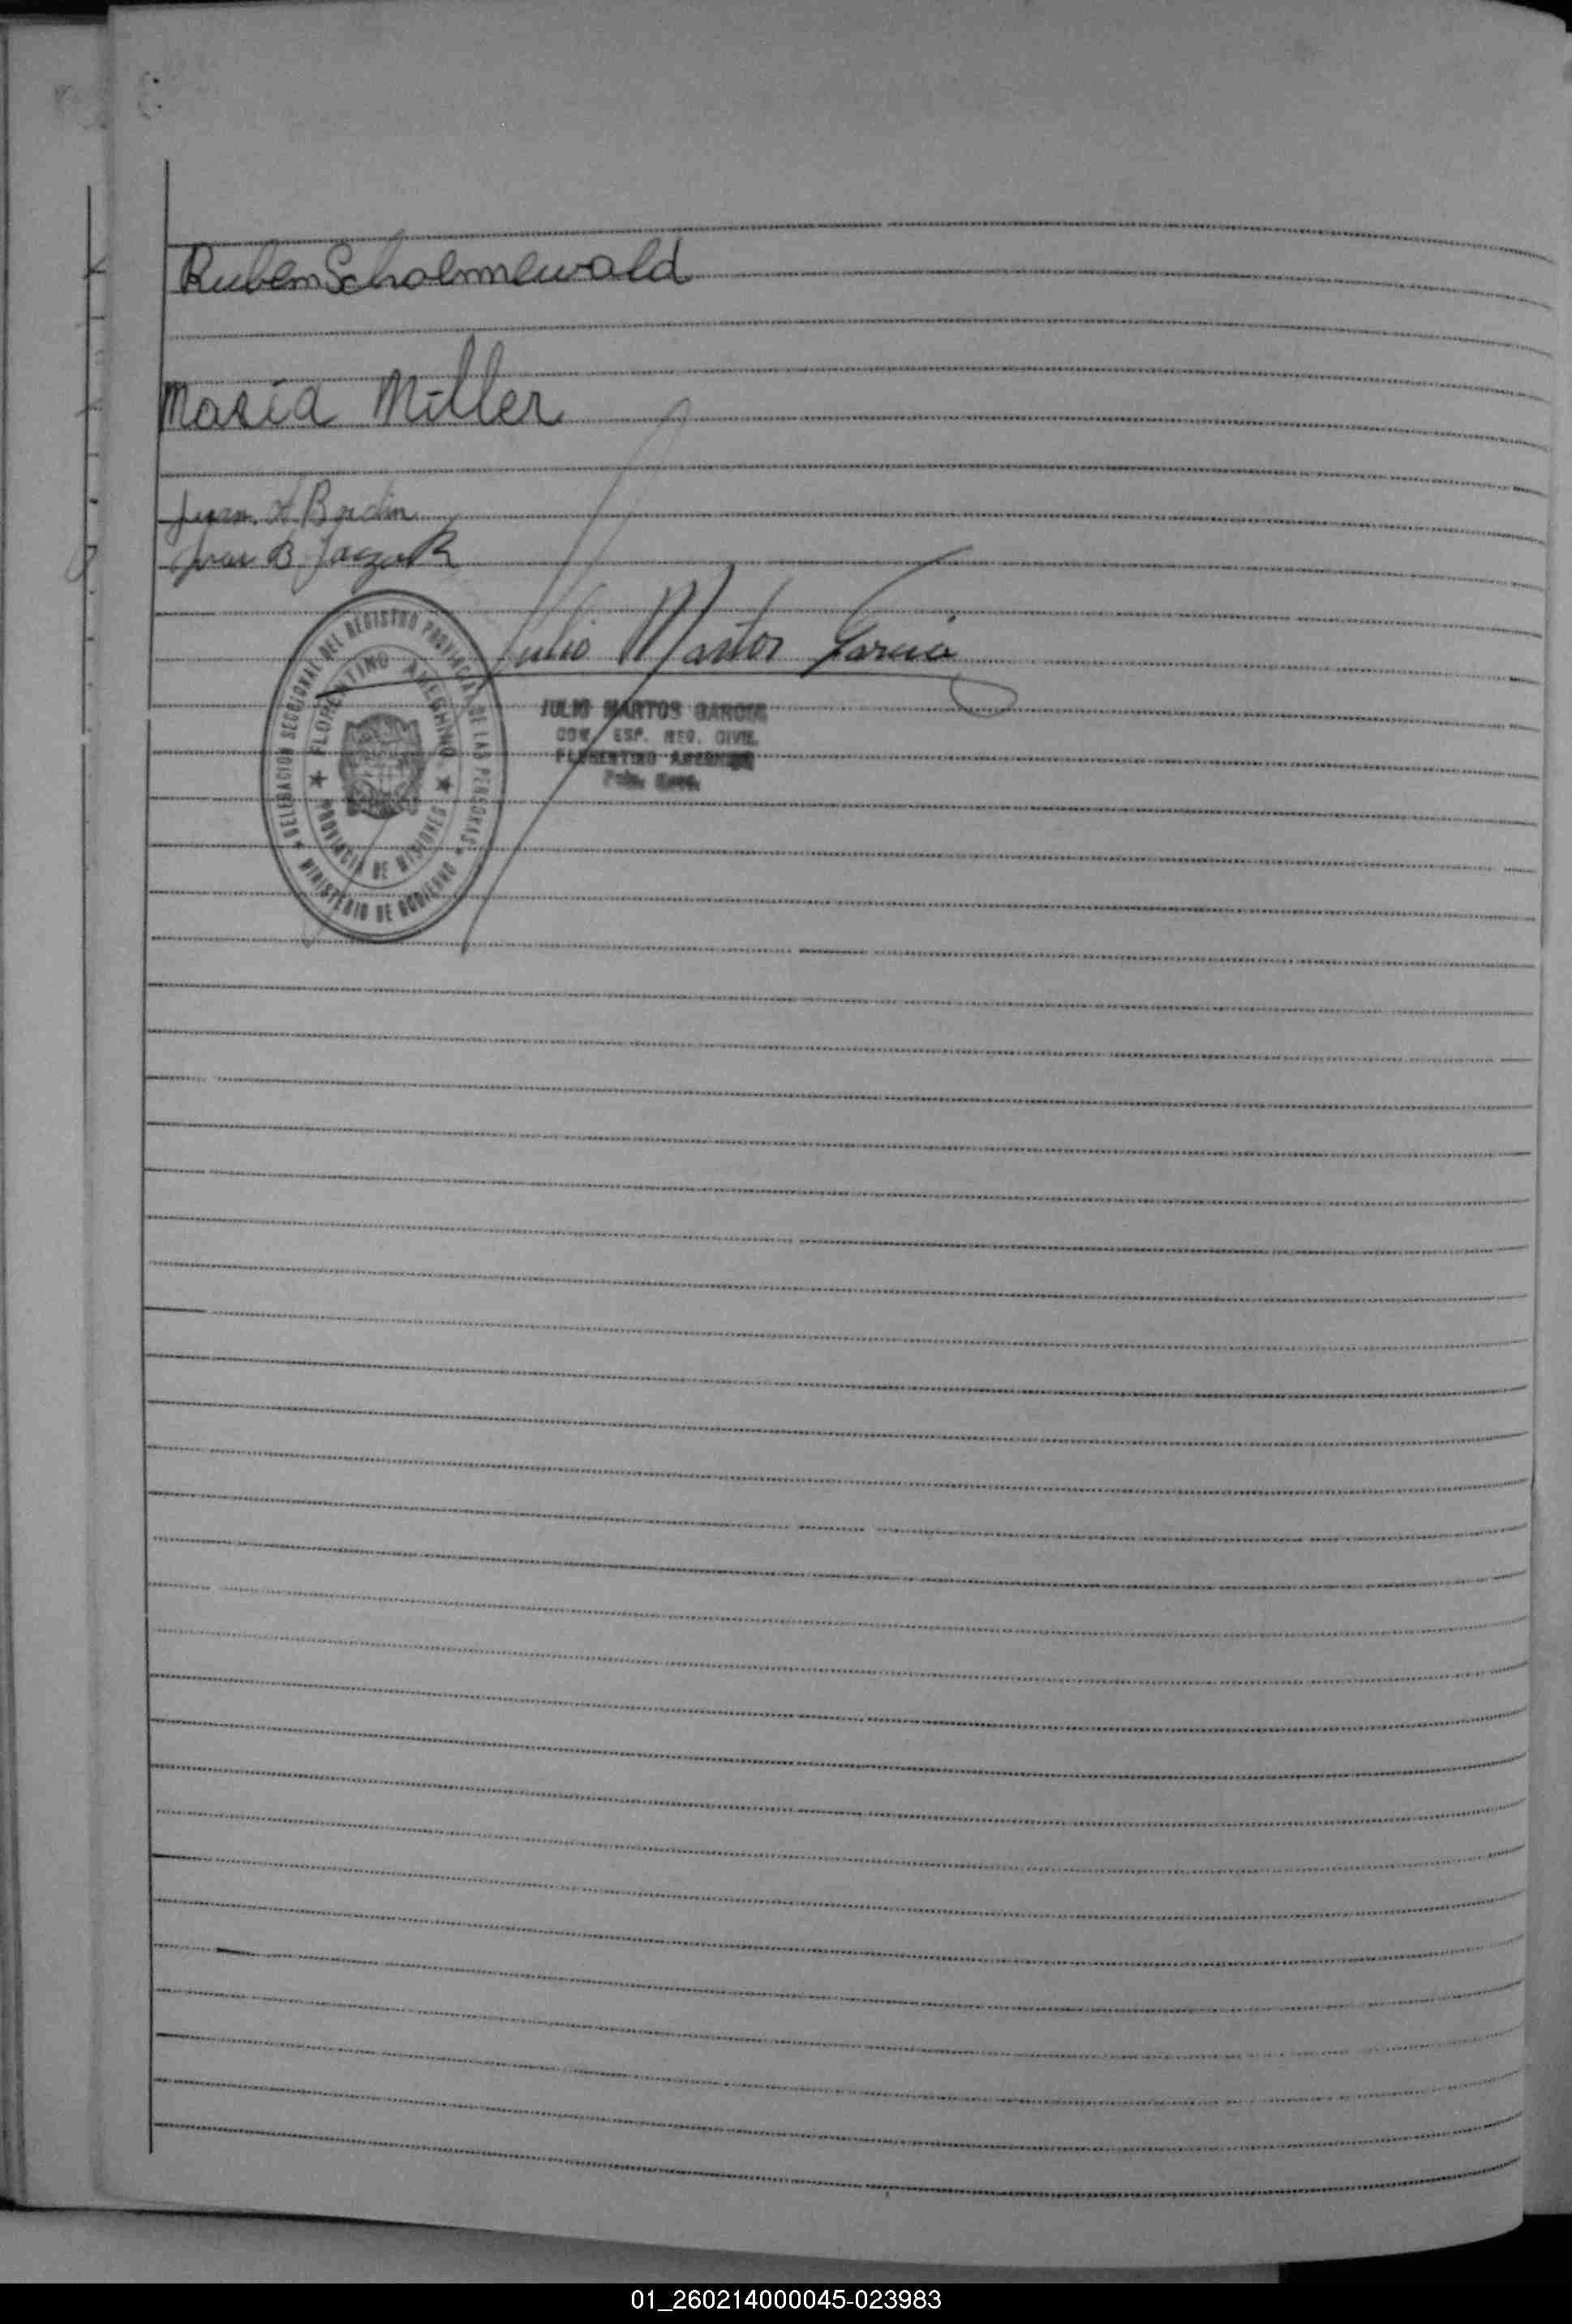 Ruben Schoenmewald
Maria Miller
Juan A Bordin
Juan B. Jaczuk
Julio Martos Garcia
DELEGACION SECCIONAL DEL REGISTRO PROVINCIAL DE LAS PERSONAS
MINISTERIO DE GOBIERNO
FLORENTINO AMEGHINO
PROVINCIA DE MISIONES
JULIO MARTOS GARCIA
ESP. REG. CIVIL
FLORENTINO AMEGHINO
01_260214000045-023983